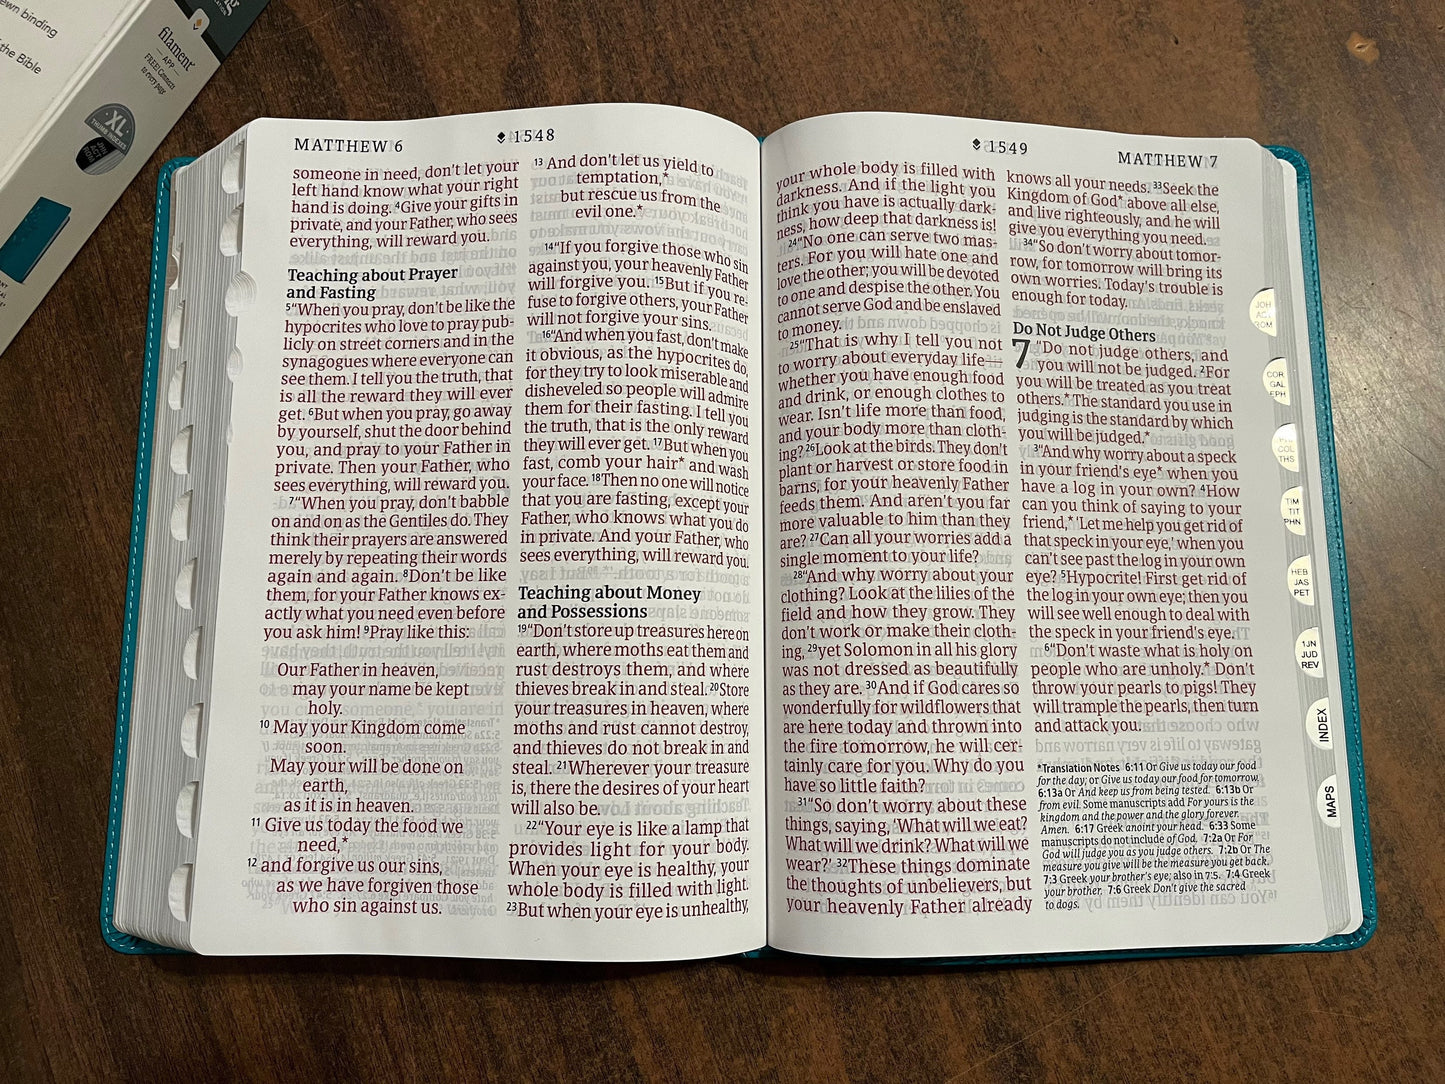 ewn binding
the Bible
filament
APP
FREE! Connects
to every page
XL
MATTHEW 6
1548
someone in need, don't let your
left hand know what your right
hand is doing. 4Give your gifts in
private, and your Father, who sees
everything, will reward you.
Teaching about Prayer
and Fasting
5"When you pray, don't be like the
hypocrites who love to pray pub-
licly on street corners and in the
synagogues where everyone can
see them. I tell you the truth, that
is all the reward they will ever
get. 6But when you pray, go away
by yourself, shut the door behind
you, and pray to your Father in
private. Then your Father, who
sees everything, will reward you.
7"When you pray, don't babble
on and on as the Gentiles do. They
think their prayers are answered
merely by repeating their words
again and again. 8Don't be like
them, for your Father knows ex-
actly what you need even before
you ask him! 9Pray like this:
Our Father in heaven,
may your name be kept
holy.
10 May your Kingdom come
soon.
May your will be done on
earth,
as it is in heaven.
11 Give us today the food we
need,*
12 and forgive us our sins,
as we have forgiven those
who sin against us.
13 And don't let us yield to
temptation,*
but rescue us from the
evil one.*
14"If you forgive those who sin
against you, your heavenly Father
will forgive you. 15But if you re-
fuse to forgive others, your Father
will not forgive your sins.
16"And when you fast, don't make
it obvious, as the hypocrites do,
for they try to look miserable and
disheveled so people will admire
them for their fasting. I tell you
the truth, that is the only reward
they will ever get. 17But when you
fast, comb your hair* and wash
your face. 18Then no one will notice
that you are fasting, except your
Father, who knows what you do
in private. And your Father, who
sees everything, will reward you.
Teaching about Money
and Possessions
19"Don't store up treasures here on
earth, where moths eat them and
rust destroys them, and where
thieves break in and steal. 20Store
your treasures in heaven, where
moths and rust cannot destroy,
and thieves do not break in and
steal. 21Wherever your treasure
is, there the desires of your heart
will also be.
22"Your eye is like a lamp that
provides light for your body.
When your eye is healthy, your
whole body is filled with light.
23But when your eye is unhealthy,
1549
MATTHEW 7
your whole body is filled with
darkness. And if the light you
think you have is actually dark-
ness, how deep that darkness is!
24"No one can serve two mas-
ters. For you will hate one and
love the other; you will be devoted
to one and despise the other. You
cannot serve God and be enslaved
to money.
25"That is why I tell you not
to worry about everyday life—
whether you have enough food
and drink, or enough clothes to
wear. Isn't life more than food,
and your body more than cloth-
ing? 26Look at the birds. They don't
plant or harvest or store food in
barns, for your heavenly Father
feeds them. And aren't you far
more valuable to him than they
are? 27Can all your worries add a
single moment to your life?
28"And why worry about your
clothing? Look at the lilies of the
field and how they grow. They
don't work or make their cloth-
ing, 29yet Solomon in all his glory
was not dressed as beautifully
as they are. 30And if God cares so
wonderfully for wildflowers that
are here today and thrown into
the fire tomorrow, he will cer-
tainly care for you. Why do you
have so little faith?
31"So don't worry about these
things, saying, 'What will we eat?
What will we drink? What will we
wear?' 32These things dominate
the thoughts of unbelievers, but
your heavenly Father already
knows all your needs. 33Seek the
Kingdom of God* above all else,
and live righteously, and he will
give you everything you need.
34"So don't worry about tomor-
row, for tomorrow will bring its
own worries. Today's trouble is
enough for today.
Do Not Judge Others
7 "Do not judge others, and
you will not be judged. 2For
you will be treated as you treat
others.* The standard you use in
judging is the standard by which
you will be judged.*
3"And why worry about a speck
in your friend's eye* when you
have a log in your own? 4How
can you think of saying to your
friend,* 'Let me help you get rid of
that speck in your eye,' when you
can't see past the log in your own
eye? 5Hypocrite! First get rid of
the log in your own eye; then you
will see well enough to deal with
the speck in your friend's eye.
6"Don't waste what is holy on
people who are unholy.* Don't
throw your pearls to pigs! They
will trample the pearls, then turn
and attack you.
*Translation Notes 6:11 Or Give us today our food
for the day; or Give us today our food for tomorrow.
6:13a Or And keep us from being tested. 6:13b Or
from evil. Some manuscripts add For yours is the
kingdom and the power and the glory forever.
Amen. 6:17 Greek anoint your head. 6:33 Some
manuscripts do not include of God. 7:2a Or For
God will judge you as you judge others. 7:2b Or The
measure you give will be the measure you get back.
7:3 Greek your brother's eye; also in 7:5. 7:4 Greek
your brother. 7:6 Greek Don't give the sacred
to dogs.
JOH
ACT
ROM
COR
GAL
EPH
COL
THS
TIM
TIT
PHN
HEB
JAS
PET
1JN
JUD
REV
INDEX
MAPS